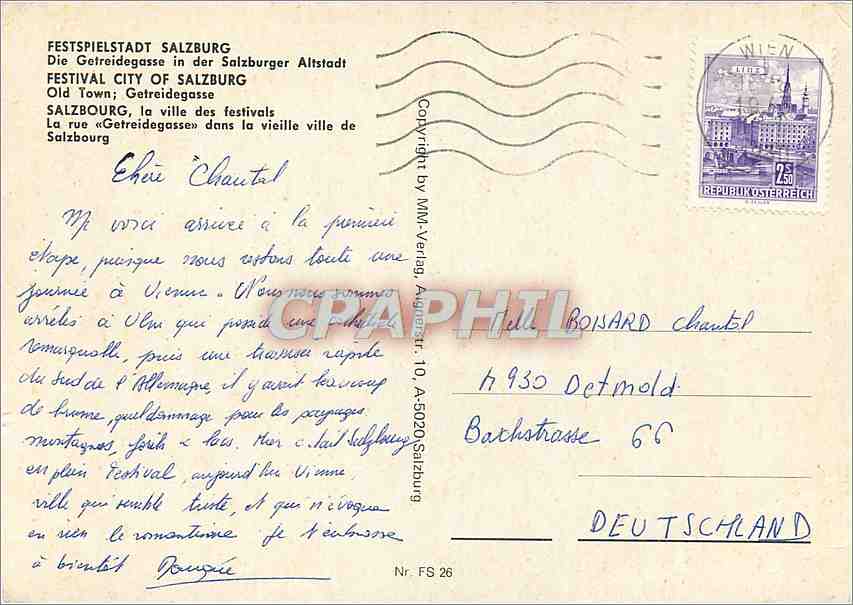 FESTSPIELSTADT SALZBURG
Die Getreidegasse in der Salzburger Altstadt
FESTIVAL CITY OF SALZBURG
Old Town; Getreidegasse
SALZBOURG, la ville des festivals
La rue «Getreidegasse» dans la vieille ville de
Salzbourg
Chère Chantal
Me voici arrivée à la première
étape, puisque nous restons toute une
journée à Vienne. Nous nous sommes
arrêtés à Ulm qui possède une cathédrale
remarquable, puis une traversée rapide
du sud de l'Allemagne, il y avait beaucoup
de brume, quel dommage pour les paysages:
montagnes, forêts & lacs. Hier c'était Salzbourg
en plein Festival, aujourd'hui Vienne,
ville qui semble triste, et qui n'évoque
en rien le romantisme. Je t'embrasse
à bientôt
Copyright by MM-Verlag, Aignerstr. 10, A-5020 Salzburg
WIEN
LINZ
2.50 S
REPUBLIK ÖSTERREICH
CPAPHIL
Melle BOISARD Chantal
4930 Detmold
Bachstrasse 66
DEUTSCHLAND
Nr. FS 26